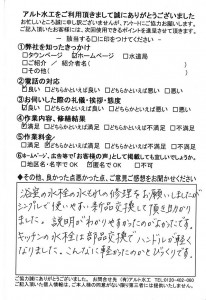 アルト水工をご利用頂きまして誠にありがとうございました
お忙しいところ誠に申し訳ございませんが、アンケートにご協力お願い致します。
ご記入頂いたお客様には、次回使用できるポイントを進呈させて頂きます
該当する□に印をつけてください
①弊社を知ったきっかけ
□タウンページ ☑ホームページ □水道局
□ご紹介／紹介者名( )
□その他( )
②電話の対応
☑良い □どちらかといえば良い □どちらかといえば悪い □悪い
③お伺いした際の礼儀・挨拶・態度
☑良い □どちらかといえば良い □どちらかといえば悪い □悪い
④作業内容、修繕結果
☑満足 □どちらかといえば満足 □どちらかといえば不満足 □不満足
⑤作業金額
☑満足 □どちらかといえば満足 □どちらかといえば不満足 □不満足
⑥ホームページ、広告等で「お客様の声」として掲載しても宜しいでしょうか。
□地区名・名字で OK □匿名で OK □不可
◆その他、良かった点悪かった点、ご意見ご感想をお聞かせください
浴室の水栓の水もれの修理をお願いしましたが
シンプルで使いやすい新品交換して頂き助かり
ました。説明がわかりやすかったのがよかったです。
キッチンの水栓は部品交換でハンドルが軽く
なりました。こんなに軽かったのかとびっくりです。
ご協力誠にありがとうございました。 お問合せ先(有)アルト水工 TEL:0120-402-080
ご記入頂いた個人情報は、ご本人様の同意がない限り第三者には提供いたしません。